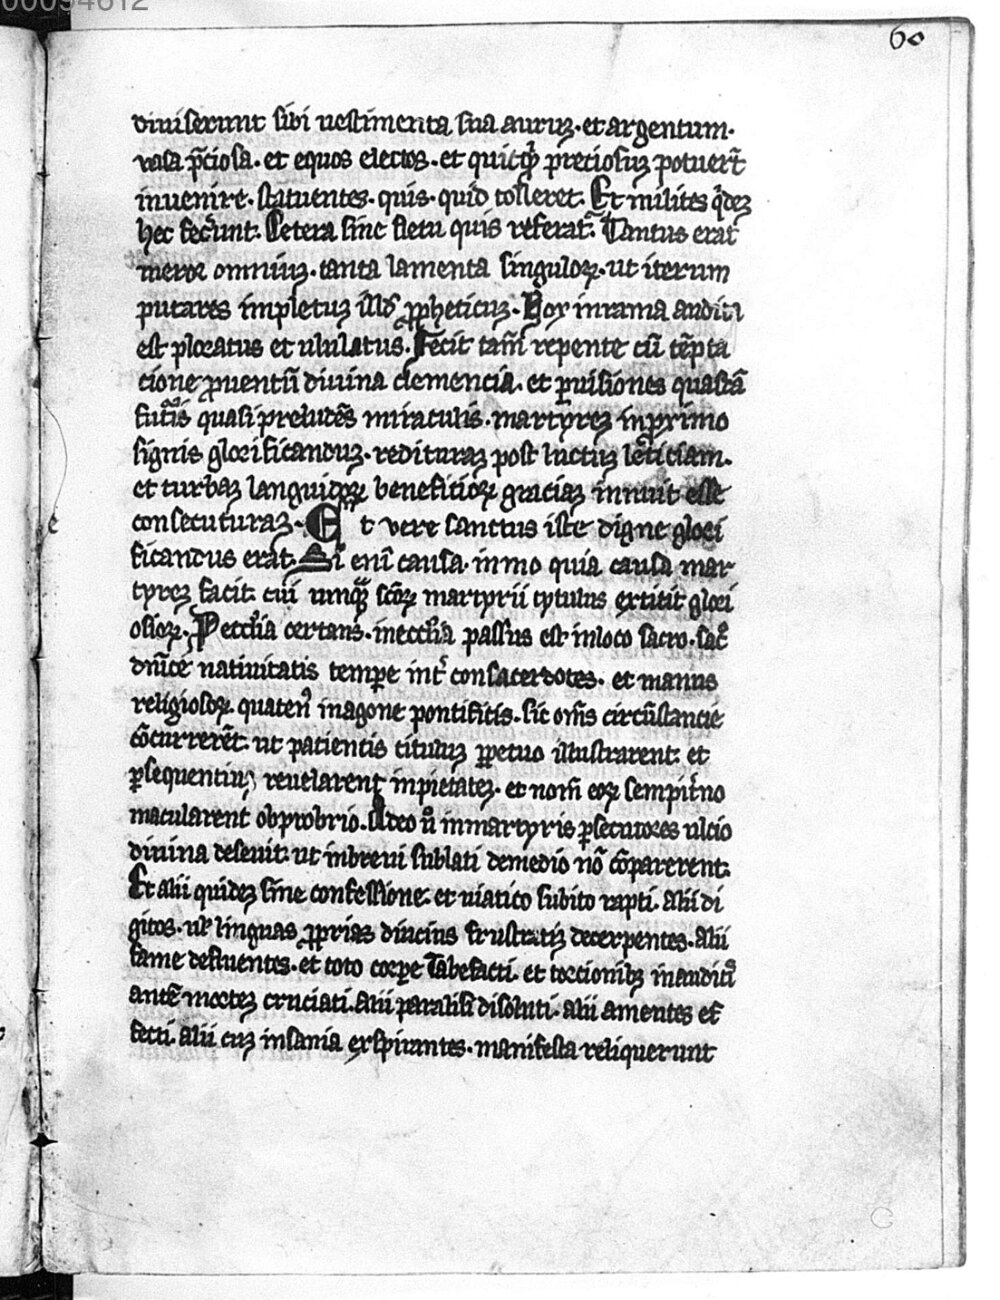 00094612
60
diuiserunt sibi uestimenta sua auruꝫ · et argentum ·
uasa p̄ciosa · et equos electos · et quicq̄ preciosiuꝫ potuer̄t
inuenire · statuentes · quis · quid tolleret · Et milites q̄deꝫ
hec fecͬunt · Cetera sine fletu quis referat · Tantus erat
meror omniuꝫ · tanta lamenta singuloꝝ · ut iterum
putares impletuꝫ illđ ꝓpheticuꝫ · Vox in rama audita
est ploratus et ululatus · Fecit tam̄ repente cū tēpta
cione ꝓuentū diuina clemencia · et ꝑuisiones quasdā
futͥis quasi preludēs miraculis · martyreꝫ in primo
signis glorificanduꝫ · redituraꝫ post luctuꝫ leticiam ·
et turbaꝫ languidoꝝ beneficioꝝ graciaꝫ innuit esse
consecuturaꝫ · Et vere sanctus iste digne glori
ficandus erat · Si eni᷒ causa · inmo quia causa mar
tyreꝫ facit · cui umqͣꝫ sc̄oꝝ martyrii tytulus extitit glori
osior · P eccͣlia certans · in eccͣlia passus est · in loco sacro · sac̄
dn̄ice natiuitatis tempore int̄ consacerdotes · et manus
religiosoꝝ · quaten᷒ in agone pontificis · sic om̄s circūstancie
cōcurrerēt · ut patientis tituluꝫ ꝑpetuo illustrarent · et
ꝑsequentiuꝫ reuelarent inpietateꝫ · et nom̄ eoꝝ sempit̄no
macularent obprobrio · Adeo u̇ in martyris ꝑsecutores ultio
diuina deseuit · ut in breui sublati de medio nō cōparerent ·
Et alii quideꝫ sine confessione · et uiatico subito rapti · alii di
gitos · uł linguas ꝓprias diucius frustatiꝫ decerpentes · alii
fame defluentes · et toto corpore tabefacti · et torcionibꝫ inauditis
ante morteꝫ cruciati · alii paralisi disoluti · alii amentes ef
fecti · alii cuꝫ insania exspirantes · manifesta reliquerunt